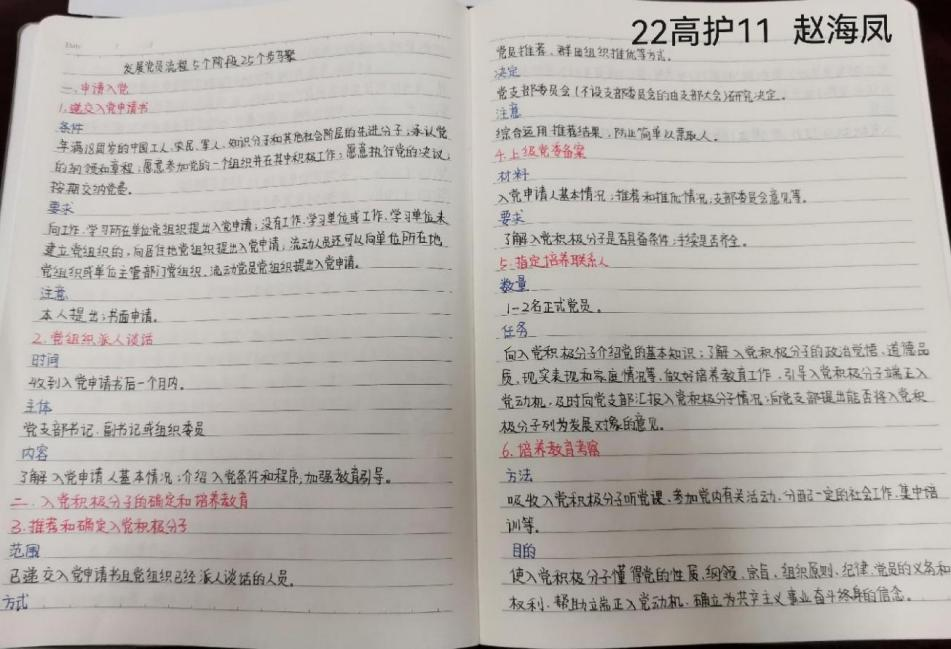 22高护11 赵海凤
Date
发展党员流程5个阶段25个步骤
一、申请入党
1.递交入党申请书
条件
年满18周岁的中国工人、农民、军人、知识分子和其他社会阶层的先进分子,承认党
的纲领和章程;愿意参加党的一个组织并在其中积极工作;愿意执行党的决议;
按期交纳党费。
要求
向工作、学习所在单位党组织提出入党申请;没有工作、学习单位或工作、学习单位未
建立党组织的,向居住地党组织提出入党申请;流动人员还可以向单位所在地
党组织或单位主管部门党组织、流动党员党组织提出入党申请。
注意
本人提出;书面申请。
2.党组织派人谈话
时间
收到入党申请书后一个月内。
主体
党支部书记、副书记或组织委员
内容
了解入党申请人基本情况;介绍入党条件和程序,加强教育引导。
二、入党积极分子的确定和培养教育
3.推荐和确定入党积极分子
范围
已递交入党申请书且党组织已经派人谈话的人员。
方式
党员推荐、群团组织推优等方式。
决定
党支部委员会(不设支部委员会的由支部大会)研究决定。
注意
综合运用推荐结果,防止简单以票取人。
4.上级党委备案
材料
入党申请人基本情况;推荐和推优情况,支部委员会意见等。
要求
了解入党积极分子是否具备条件;手续是否齐全。
5.指定培养联系人
数量
1-2名正式党员。
任务
向入党积极分子介绍党的基本知识;了解入党积极分子的政治觉悟、道德品
质、现实表现和家庭情况等,做好培养教育工作,引导入党积极分子端正入
党动机,及时向党支部汇报入党积极分子情况;向党支部提出能否将入党积
极分子列为发展对象的意见。
6.培养教育考察
方法
吸收入党积极分子听党课、参加党内有关活动,分配一定的社会工作,集中培
训等。
目的
使入党积极分子懂得党的性质、纲领、宗旨、组织原则、纪律、党员的义务和
权利,帮助端正入党动机,确立为共产主义事业奋斗终身的信念。